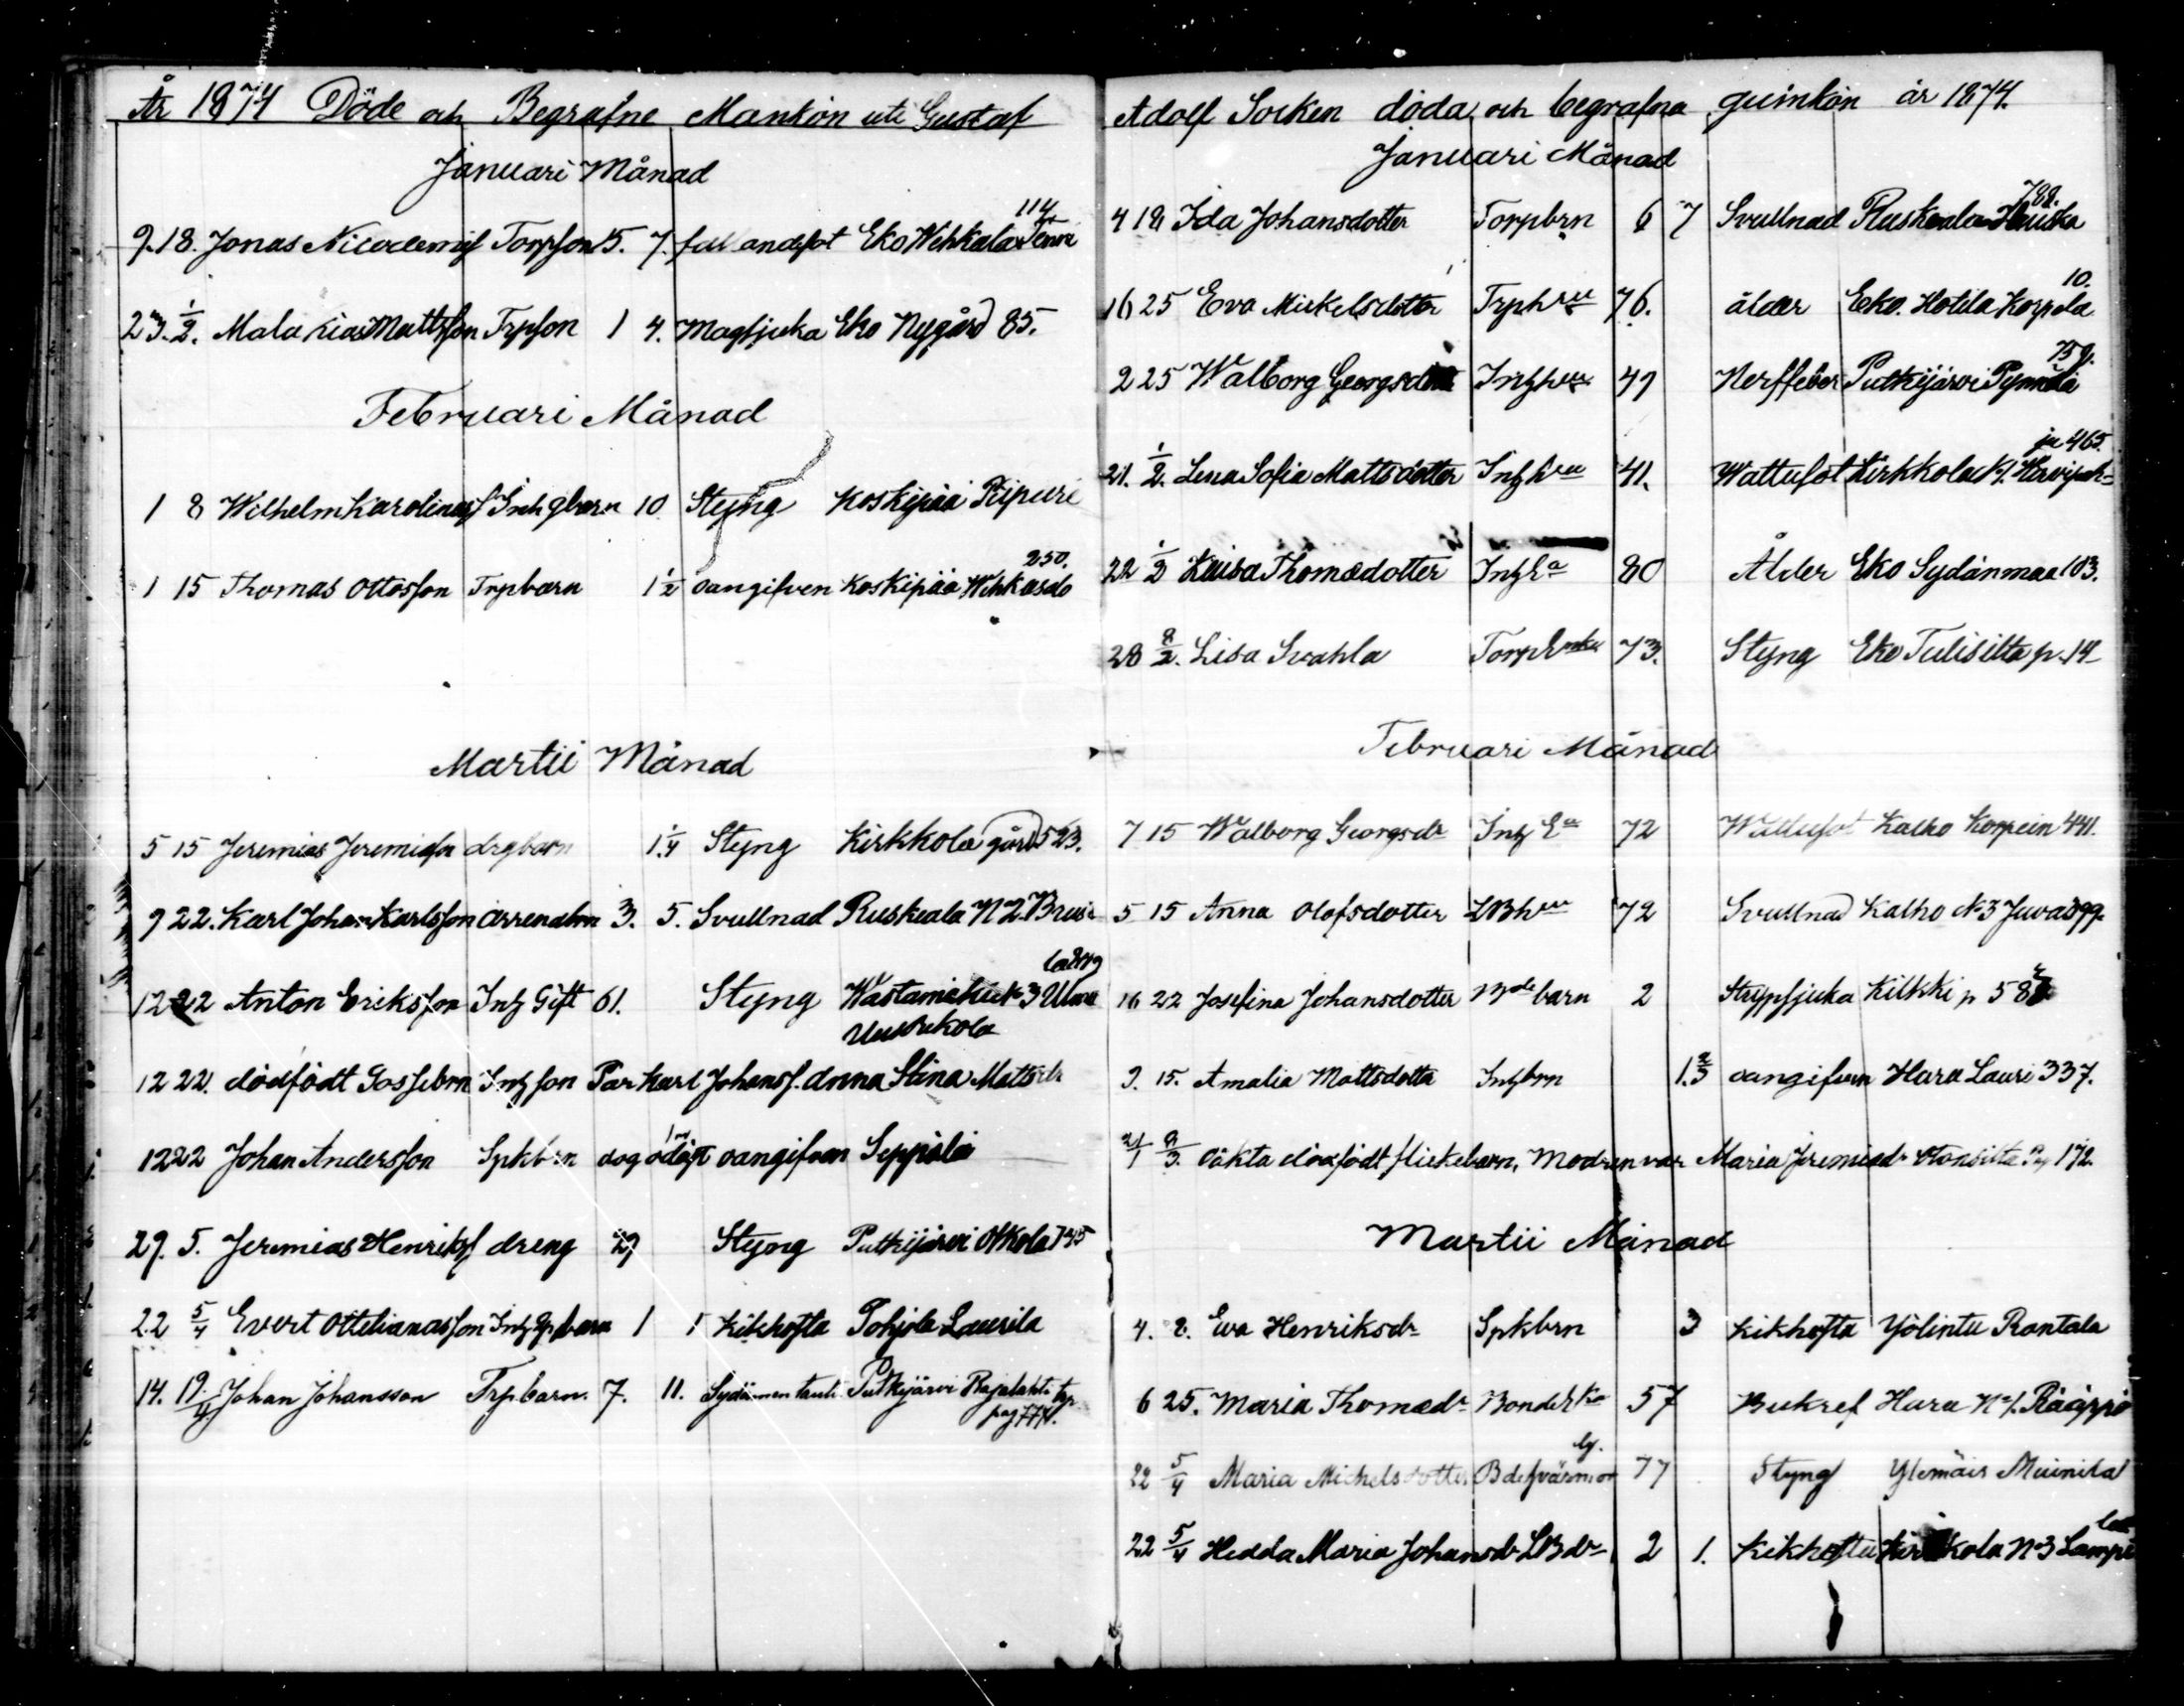 År 1874 Döde och Begrafne Mankön uti Gustaf
Januari Månad
114
9. 18. Jonas Nicodemusf Torpson 15. 7. fallandsot Eko Wehkala
23. 1/2. Malakias Mattsson Trpson 1 4. Magsjuka Eko Nygård 85.
Februari Månad
1 8 Wilhelm Karolinasf Inhgbarn 10 Styng Koskipää Ripuri
250.
1 15 Thomas Ottosson Trpbarn 1 1/2 oangifven Koskipää
Martii Månad
5 15 Jeremias Jeremiasson drgbarn 1.4 Styng Kirkkola gård 523.
9 22. Karl Johan Karlsson 3. 5. Svullnad Ruskeala N2
12 22 Anton Eriksson Inh Gift 61. Styng N 3
Uusikola
12 22. dödfödt Gossebrn Inhson Par Karl Johansf. Anna Stina Mattsdr
12 22 Johan Andersson Spkbrn dog odöpt oangifven Seppälä
29. 5. Jeremias Henriksf dreng 29 Styng Putkijärvi 745
22 5/4 Evert Ottelianasson barn 1 1 Kikhosta Pohjola Laurila
14. 19/4 Johan Johansson Trpbarn. 7. 11. Sydämen tauti Putkijärvi Rajalahti trp
pag 774.
Adolf Socken döda och begrafna quinkön år 1874.
Januari Månad
788.
4 18 Ida Johansdotter Torpbrn 6 7 Svullnad Ruskeala
10.
16 25 Eva Mickelsdotter Trphru 76. ålder Eko. Hotila Korpela
759.
2 25 Walborg Georgsdotter Inhhru 49 Nerffeber Putkijärvi
465.
21. 1/2. Lena Sofia Mattsdotter Inhhru 41. Wattusot Kirkkola
22 1/2 Luisa Thomædotter InhEa 80 Ålder Eko Sydänmaa 103.
28 8/2. Lisa Svahla TorpEnka 73. Styng Eko Tulisilta p. 14
Februari Månad
7 15 Walborg Georgsdr Inh Ea 72 Wattusot Kalho Korpein 441.
5 15 Anna Olofsdotter LBhru 72 Svullnad Kalho N3 Juva
16 22 Josefina Johansdotter barn 2 Strypsjuka Kilkki p 58
9. 15. Amalia Mattsdotter Inhbrn 1. 2/3 oangifven Hara Lauri 337.
21/1 8/3. Oäkta dödfödt flickebarn, Modren var Maria Jeremiædr 172.
Martii Månad
4. 8. Eva Henriksdr Spkbrn 3 Kikhosta Yölintu Rantala
6 25. Maria Thomædr BondeEka 57 Hara N1. Rääppö
22 5/4 Maria Michelsdotter 77 Styng Ylemäis Muinila
22 5/4 Hedda Maria Johansdr LBdr 2 1. Kikhosta Kirkkola N3